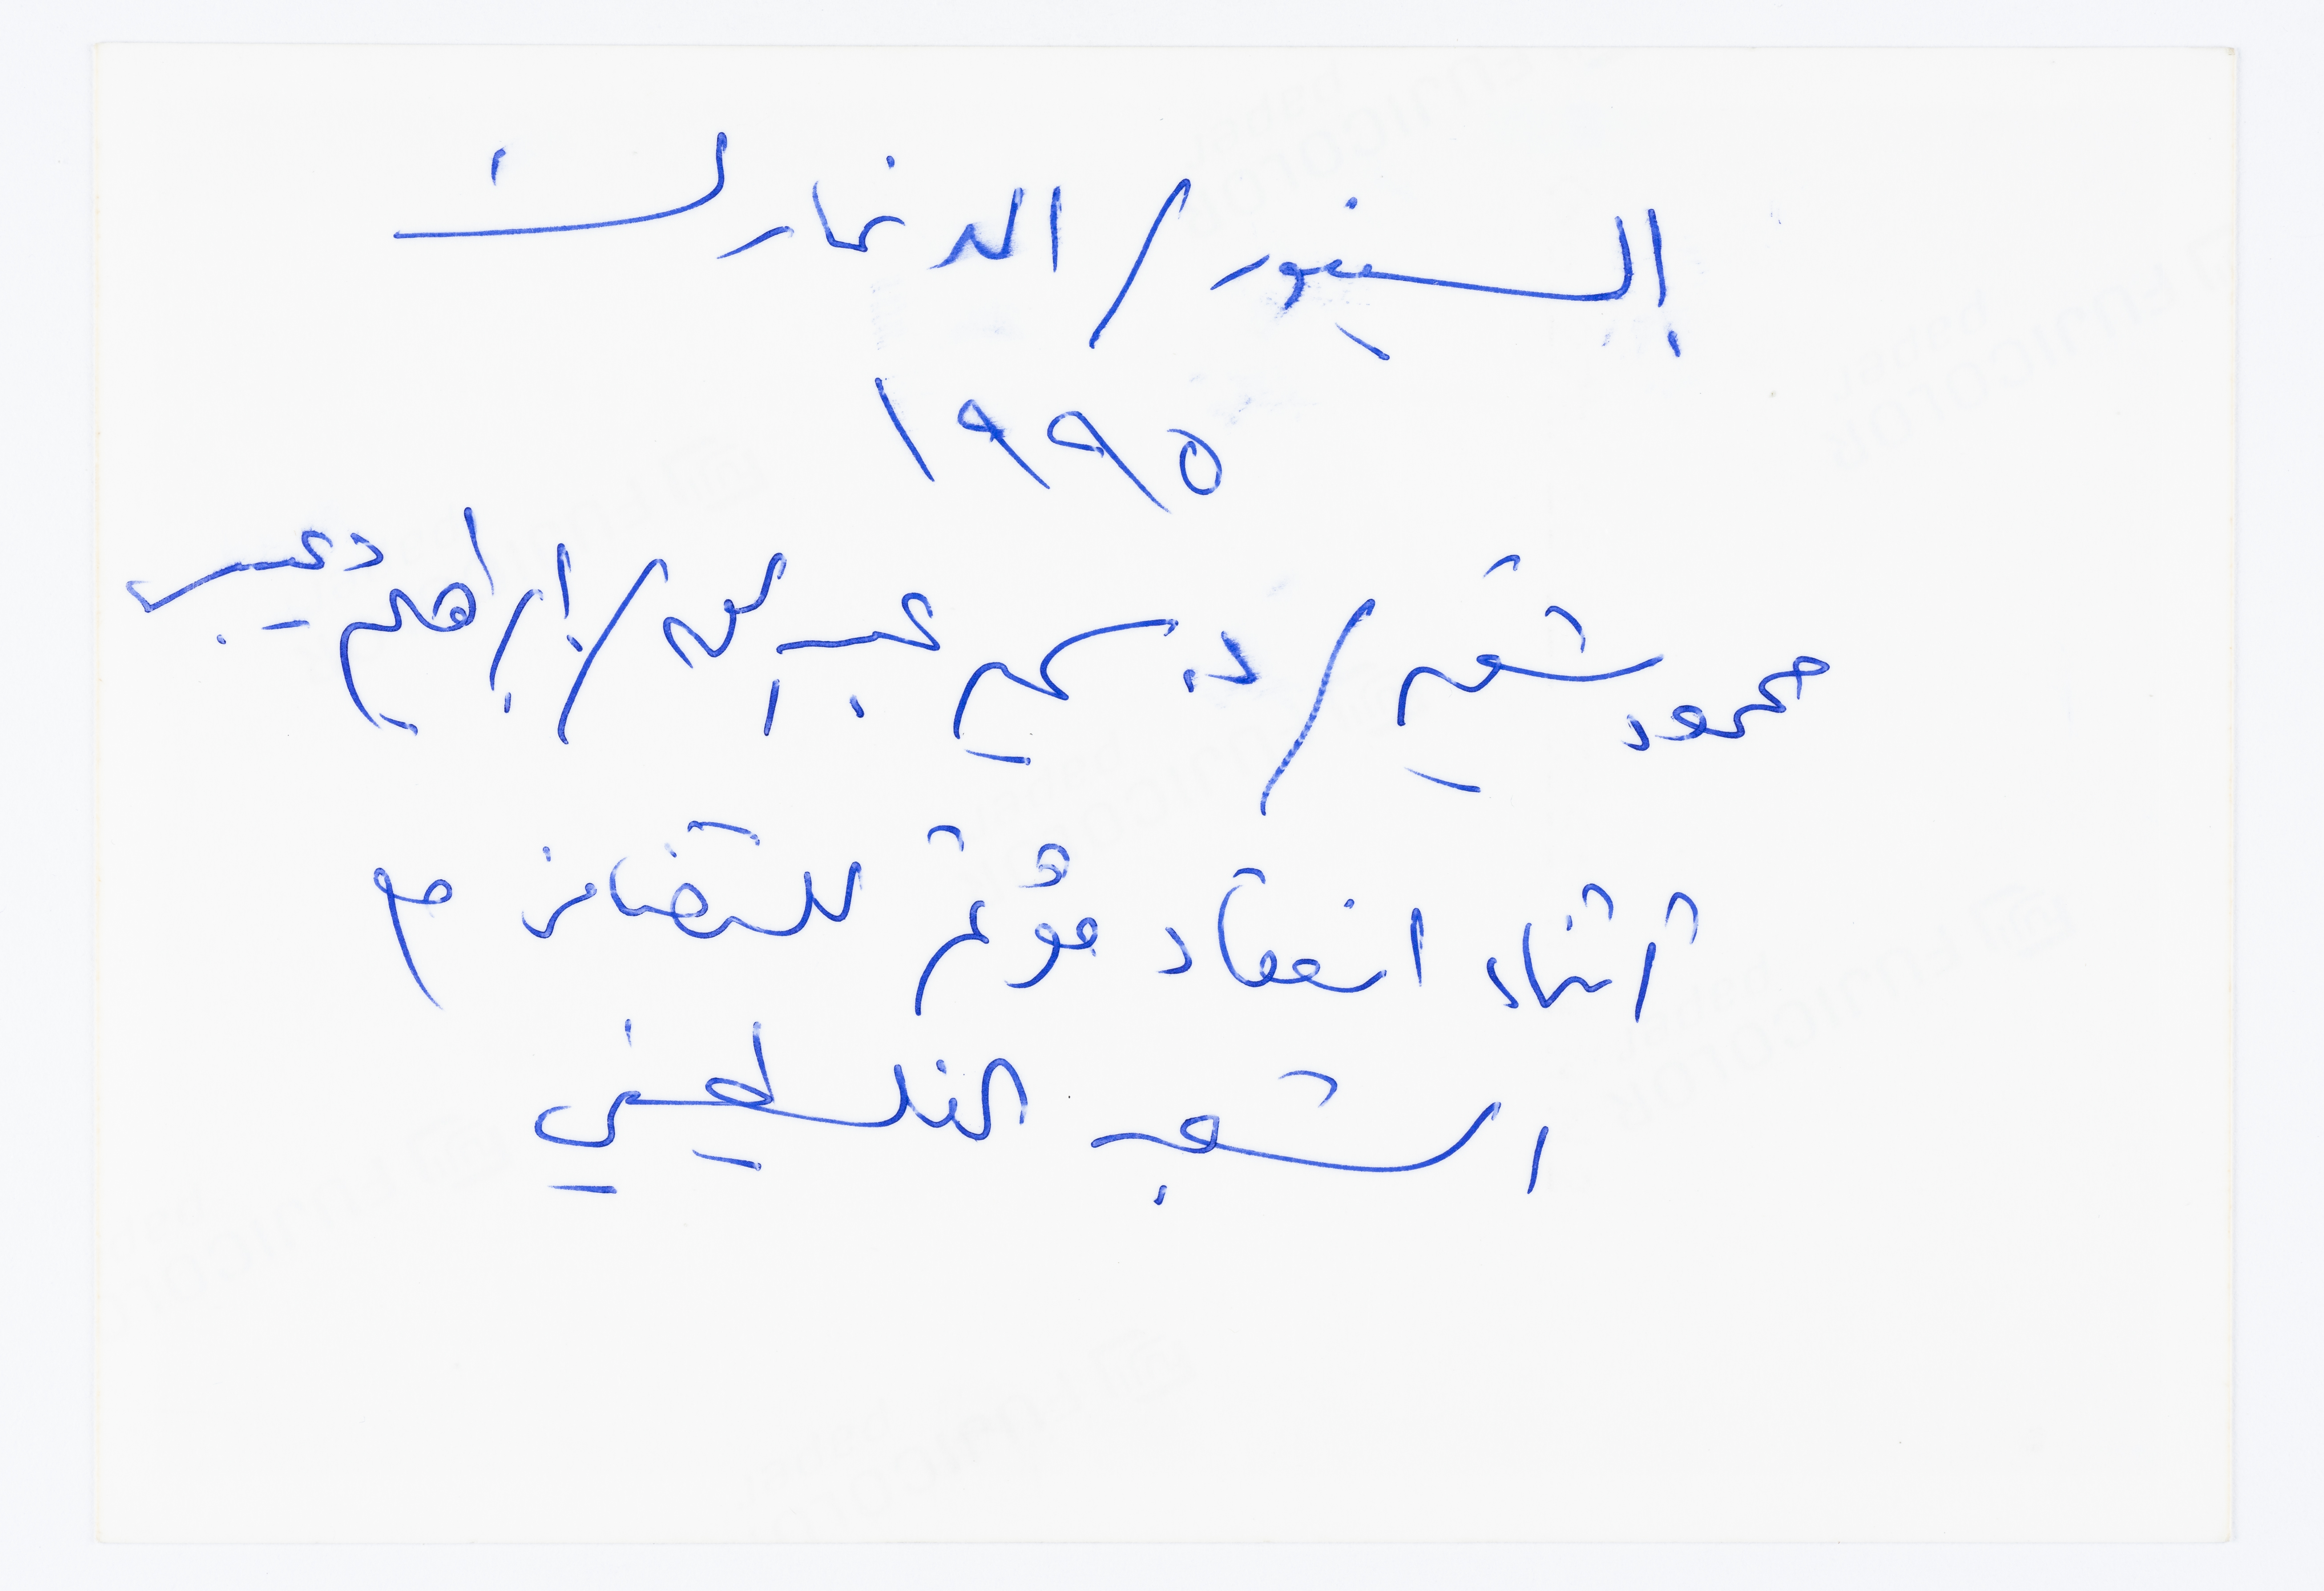 إلسينور / الدنمارك
١٩٩٥
محمود شقير / د. سمير عبد الله / إبراهيم دعيبس
أثناء انعقاد مؤتمر للتضامن مع
الشعب الفلسطيني